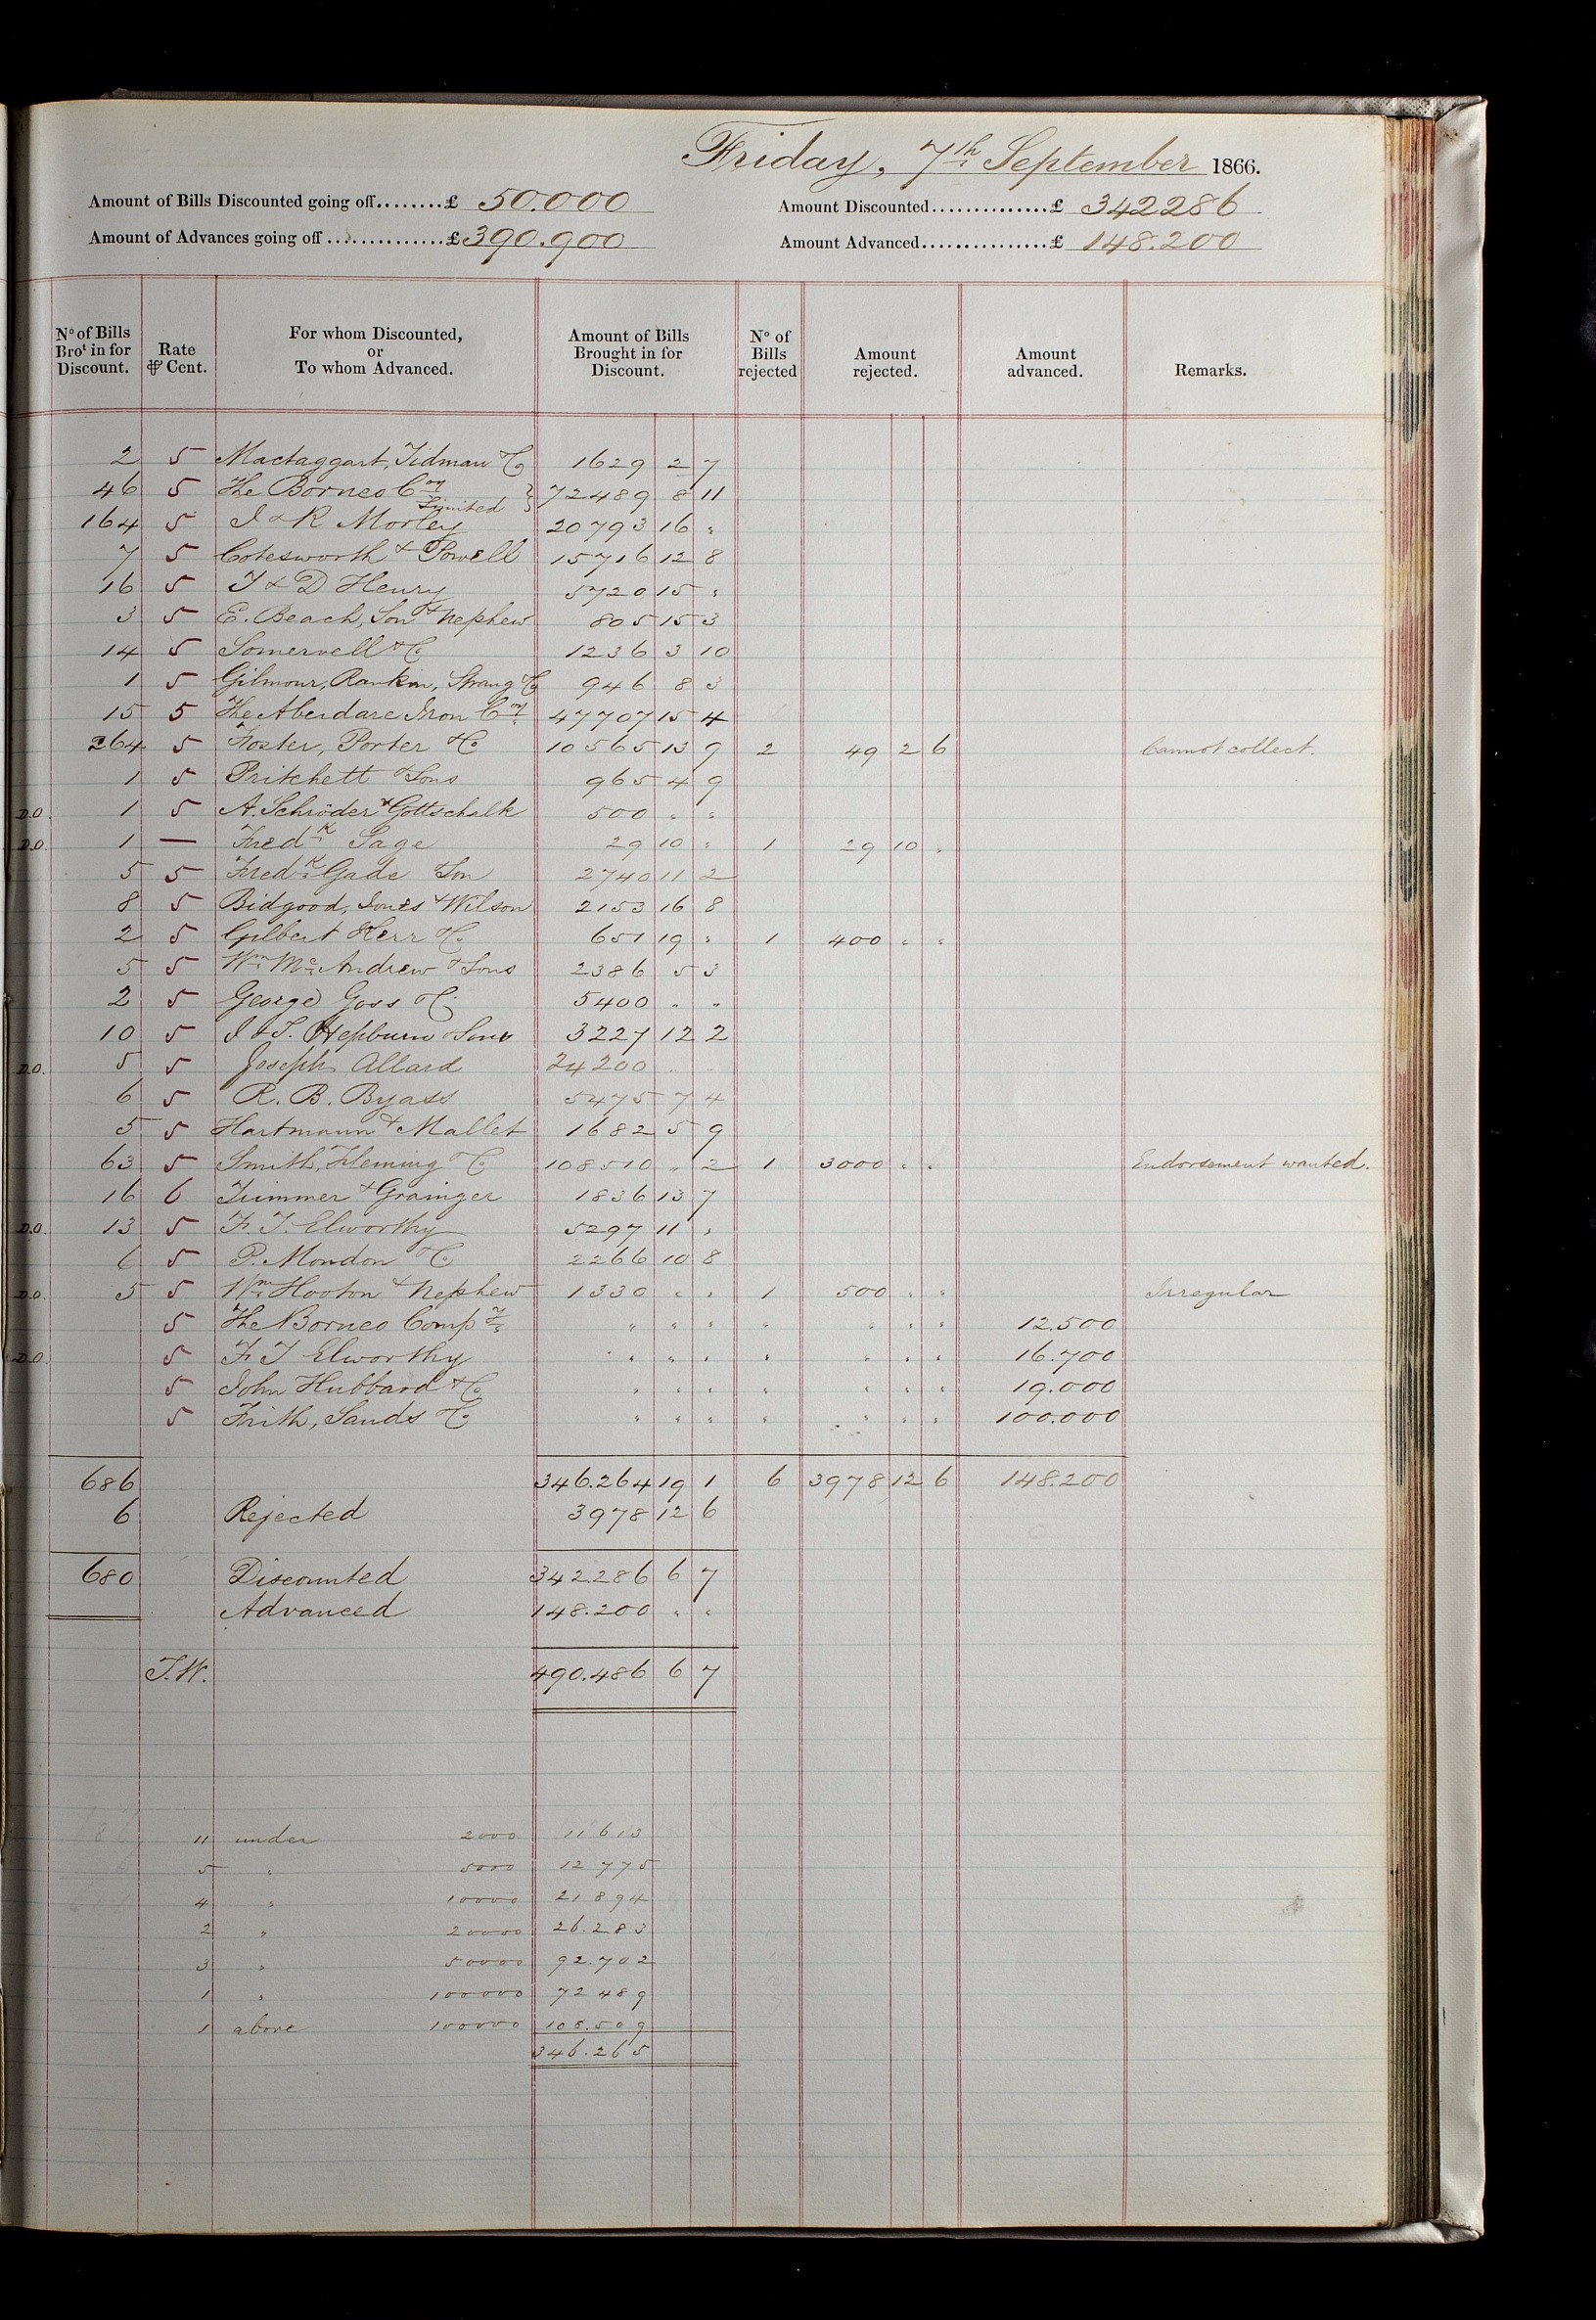 Friday, 7th September 1866.
Amount of Bills Discounted going off........£ 50.000 Amount Discounted..............£ 342286
Amount of Advances going off ..............£ 390.900 Amount Advanced................£ 148.200
No of Bills Brot in for Discount. Rate ⅌ Cent. For whom Discounted, or To whom Advanced. Amount of Bills Brought in for Discount. No of Bills rejected Amount rejected. Amount advanced. Remarks.
2 5 Mactaggart, Tidman & Co 1629 2 7
46 5 The Borneo Coy Limited } 72489 8 11
164 5 I & R Morley 20793 16 "
7 5 Cotesworth & Powell 15716 12 8
16 5 T & D Henry 5720 15 "
3 5 E. Beach, Son & Nephew 805 15 3
14 5 Somervell & Co 1236 3 10
1 5 Gilmour, Rankin, Strang & Co 946 8 3
15 5 The Aberdare Iron Coy 47707 15 4
264 5 Foster, Porter & Co 10565 13 9 2 49 2 6 Cannot collect.
1 5 Pritchett & Sons 965 4 9
D.O. 1 5 A. Schröder & Gottschalk 500 " "
D.O. 1 — Fredk Sage 29 10 " 1 29 10 "
5 5 Fredk Gade & Son 2740 11 2
8 5 Bidgood, Jones & Wilson 2153 16 8
2 5 Gilbert Kerr & Co 651 19 " 1 400 " "
5 5 Wm McAndrew & Sons 2386 5 3
2 5 George Goss & Co 5400 " "
10 5 J & T. Hepburn & Sons 3227 12 2
D.O. 5 5 Joseph Allard 24200 " "
6 5 R. B. Byass 5475 7 4
5 5 Hartmann & Mallet 1682 5 9
63 5 Smith, Fleming & Co 108510 " 2 1 3000 " " Endorsement wanted.
16 6 Trimmer & Grainger 1836 13 7
D.O. 13 5 F. T. Elworthy 5297 11 "
6 5 P. Mondon & Co 2266 10 8
D.O. 5 5 Wm Hooton & Nephew 1330 " " 1 500 " " Irregular
5 The Borneo Compy " " " " " " " 12.500
D.O. 5 F T Elworthy " " " " " " " 16.700
5 John Hubbard & Co " " " " " " " 19.000
5 Frith, Sands & Co " " " " " " " 100.000
686 346.264 19 1 6 3978 12 6 148.200
6 Rejected 3978 12 6
680 Discounted 342.286 6 7
Advanced 148.200 " "
T.W. 490.486 6 7
11 under 2000 11613
5 " 5000 12775
4 " 10000 21894
2 " 20000 26.283
3 " 50000 92.702
1 " 100000 72489
1 above 100000 108.509
346.265